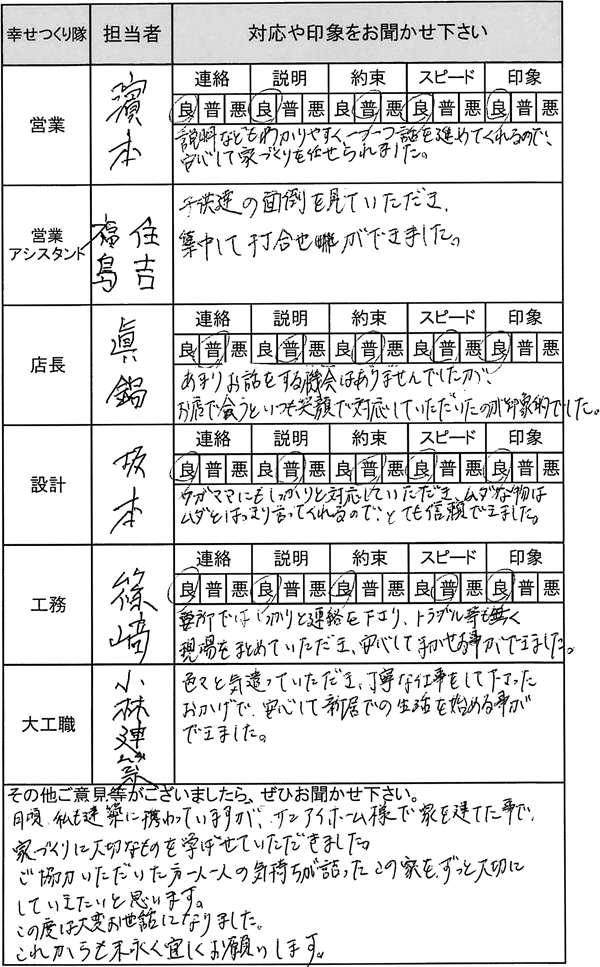 幸せつくり隊 担当者 対応や印象をお聞かせ下さい
営業 濱本
連絡 説明 約束 スピード 印象
良 普 悪 良 普 悪 良 普 悪 良 普 悪 良 普 悪
説明などもわかりやすく、一つ一つ話を進めてくれるので、
安心して家づくりを任せられました。
営業アシスタント 福島 住吉
子供達の面倒を見ていただき、
集中して打合せ がができました。
店長 眞鍋
連絡 説明 約束 スピード 印象
良 普 悪 良 普 悪 良 普 悪 良 普 悪 良 普 悪
あまりお話をする機会はありませんでしたが、
お店で会うといつも笑顔で対応していただいたのが印象的でした。
設計 坂本
連絡 説明 約束 スピード 印象
良 普 悪 良 普 悪 良 普 悪 良 普 悪 良 普 悪
ワガママにもしっかりと対応していただき、ムダな物は
ムダとはっきり言ってくれるので、とても信頼できました。
工務 篠﨑
連絡 説明 約束 スピード 印象
良 普 悪 良 普 悪 良 普 悪 良 普 悪 良 普 悪
要所ではしっかりと連絡を下さり、トラブル等も無く
現場をまとめていただき、安心してまかせる事ができました。
大工職 小林建築
色々と気遣っていただき、丁寧な仕事をして下さった
おかげで、安心して新居での生活を始める事が
できました。
その他ご意見等がございましたら、ぜひお聞かせ下さい。
日頃、私も建築に携わっていますが、サンアイホーム様で家を建てた事で、
家づくりに大切なものを学ばせていただきました。
ご協力いただいた方一人一人の気持ちが詰ったこの家を、ずっと大切に
していきたいと思います。
この度は大変お世話になりました。
これからも末永く宜しくお願いします。